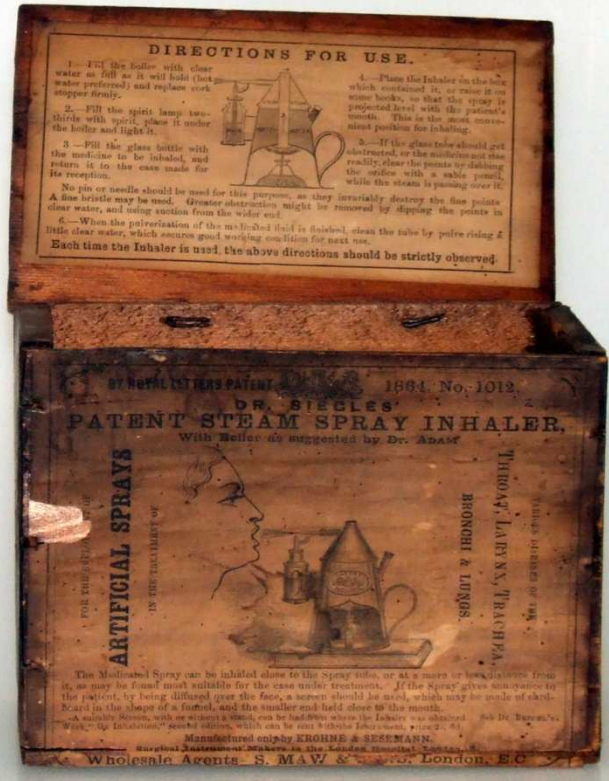 DIRECTIONS FOR USE.
1.—Fill the boiler with clear
water as full as it will hold (hot
water preferred) and replace cork
stopper firmly.
2.—Fill the spirit lamp two-
thirds with spirit, place it under
the boiler and light it.
3.—Fill the glass bottle with
the medicine to be inhaled, and
return it to the case made for
its reception.
4.—Place the Inhaler on the box
which contained it, or raise it on
some books, so that the spray is
projected level with the patient's
mouth. This is the most conve-
nient position for inhaling.
5.—If the glass tube should get
obstructed, or the medicine not rise
readily, clear the points by dabbing
the orifice with a sable pencil,
while the steam is passing over it.
No pin or needle should be used for this purpose, as they invariably destroy the fine points
A fine bristle may be used. Greater obstruction might be removed by dipping the points in
clear water, and using suction from the wider end.
6.—When the pulverization of the medicated fluid is finished, clean the tube by pulverising a
little clear water, which secures good working condition for next use.
Each time the Inhaler is used, the above directions should be strictly observed.
BY ROYAL LETTERS PATENT 1864, No. 1012.
DR. SIEGLES'
PATENT STEAM SPRAY INHALER,
With Boiler as suggested by Dr. ADAM
ARTIFICIAL SPRAYS
IN THE TREATMENT OF
VARIOUS DISEASES OF THE
THROAT, LARYNX, TRACHEA,
BRONCHI & LUNGS.
The Medicated Spray can be inhaled close to the Spray tube, or at a more or less distance from
it, as may be found most suitable for the case under treatment. If the Spray gives annoyance to
the patient, by being diffused over the face, a screen should be used, which may be made of card-
board in the shape of a funnel, and the smaller end held close to the mouth.
A suitable Screen, with or without a stand, can be had from where the Inhaler was obtained See Dr.
Work "On Inhalation," second edition, which can be sent with the Inhaler
Manufactured only by KROHNE & SESEMANN.
Surgical Instrument Makers to the London Hospital, London
Wholesale Agents S. MAW & London, E.C